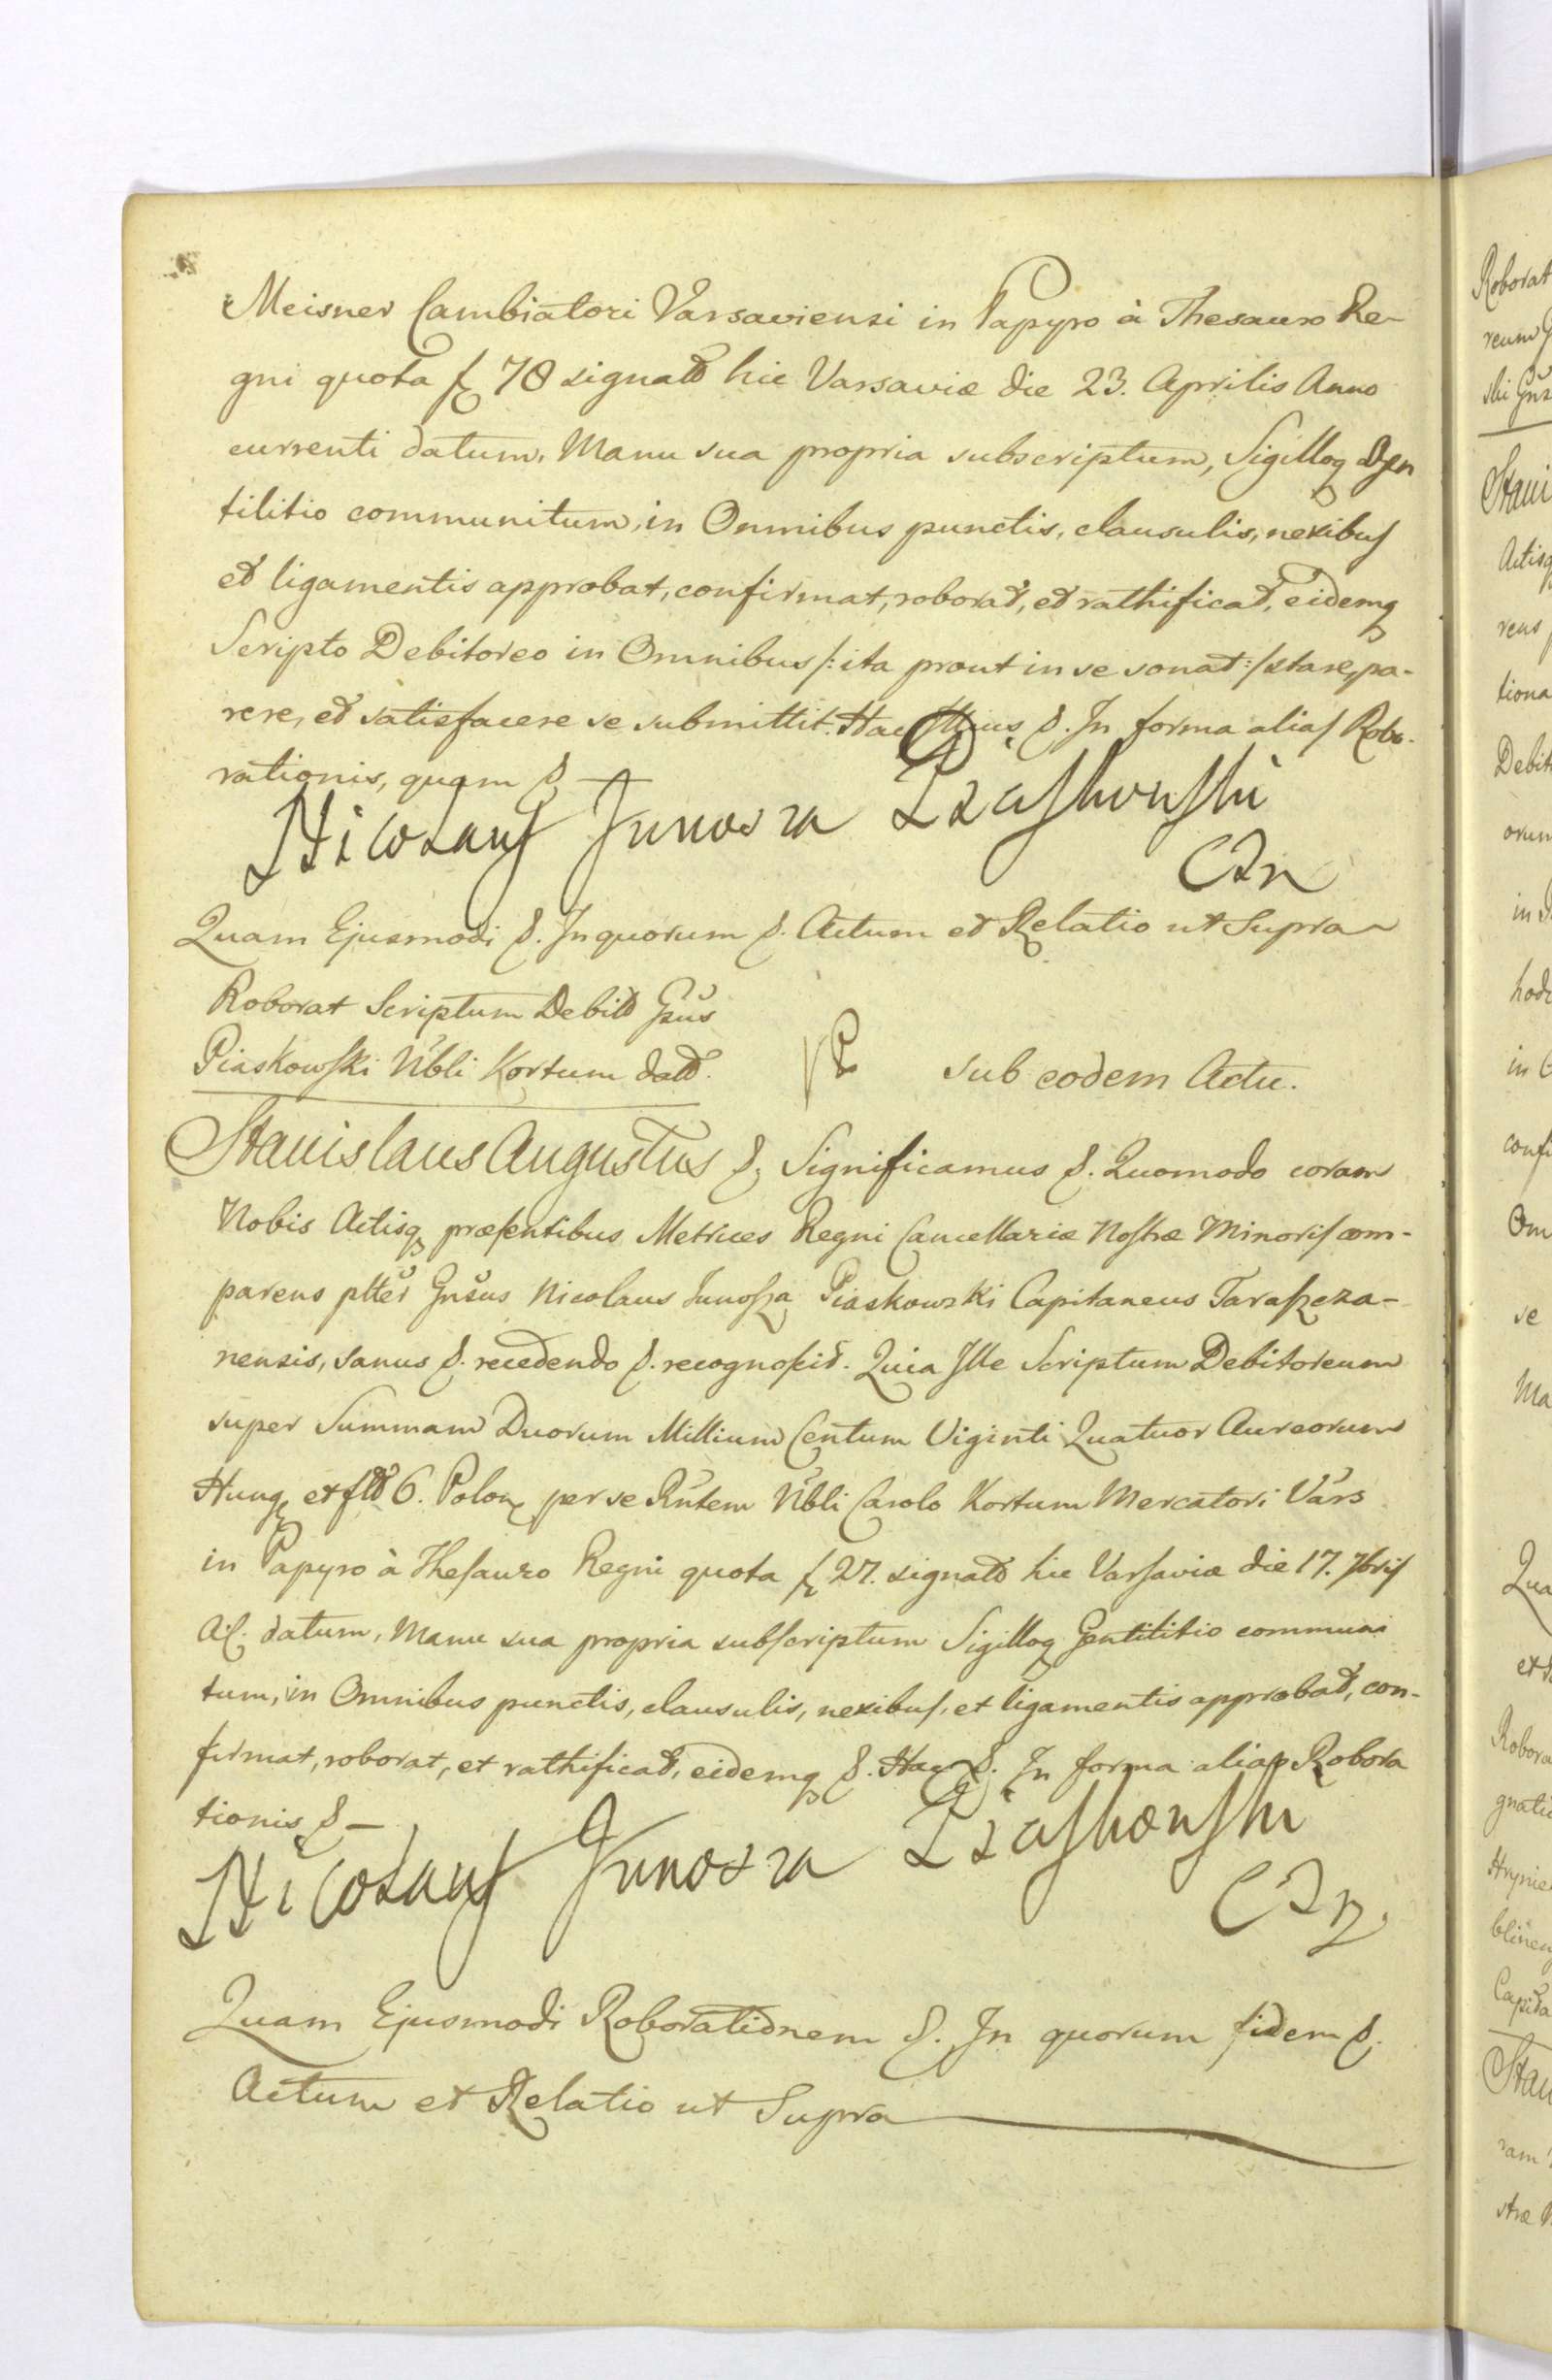 Meisner Cambiatori Varsaviensi in Papyro à Thesauro Re-
gni quota f 78 signato hic Varsaviæ die 23. Aprilis Anno
currenti datum, Manu sua propria subscriptum, Sigilloq Gen
tilitio communitum, in Omnibus punctis, clausulis, nexibus
et ligamentis approbat, confirmat, roborat, et rathificat, eidemq
Scripto Debitoreo in Omnibus /: ita prout in se sonat :/ stare, pa-
rere, et satisfacere se submittit. Hac &. In forma alias Robo-
rationis, quam &
Nicolaus Junosza Piaskowski
Quam Ejusmodi &. In quorum &. Actum et Relatio ut Supra
Roborat Scriptum Debito Gsus
Piaskowski Nbli Kortum dato.
sub eodem Actu.
Stanislaus Augustus &. Significamus &. Quomodo coram
Nobis Actisq præsentibus Metrices Regni Cancellariæ Nostræ Minoris com-
parens pltter Gnsus Nicolaus Junosza Piaskowski Capitaneus Taraszcza-
nensis, sanus &. recedendo &. recognoscit. Quia Ille Scriptum Debitoreum
super Summam Duorum Millium Centum Viginti Quatuor Aureorum
Hung et flo 6. Polon per se Rntem Nbli Carolo Kortum Mercatori Vars
in Papyro à Thesauro Regni quota f 27. signato hic Varsaviæ die 17. 7bris
A. C. datum, Manu sua propria subscriptum Sigilloq Gentilitio communi
tum, in Omnibus punctis, clausulis, nexibus, et ligamentis approbat, con-
firmat, roborat, et rathificat, eidemq &. Hac &. In forma alias Robora
tionis &
Nicolaus Junosza Piaskowski
Quam Ejusmodi Roborationem &. In quorum fidem &.
Actum et Relatio ut Supra